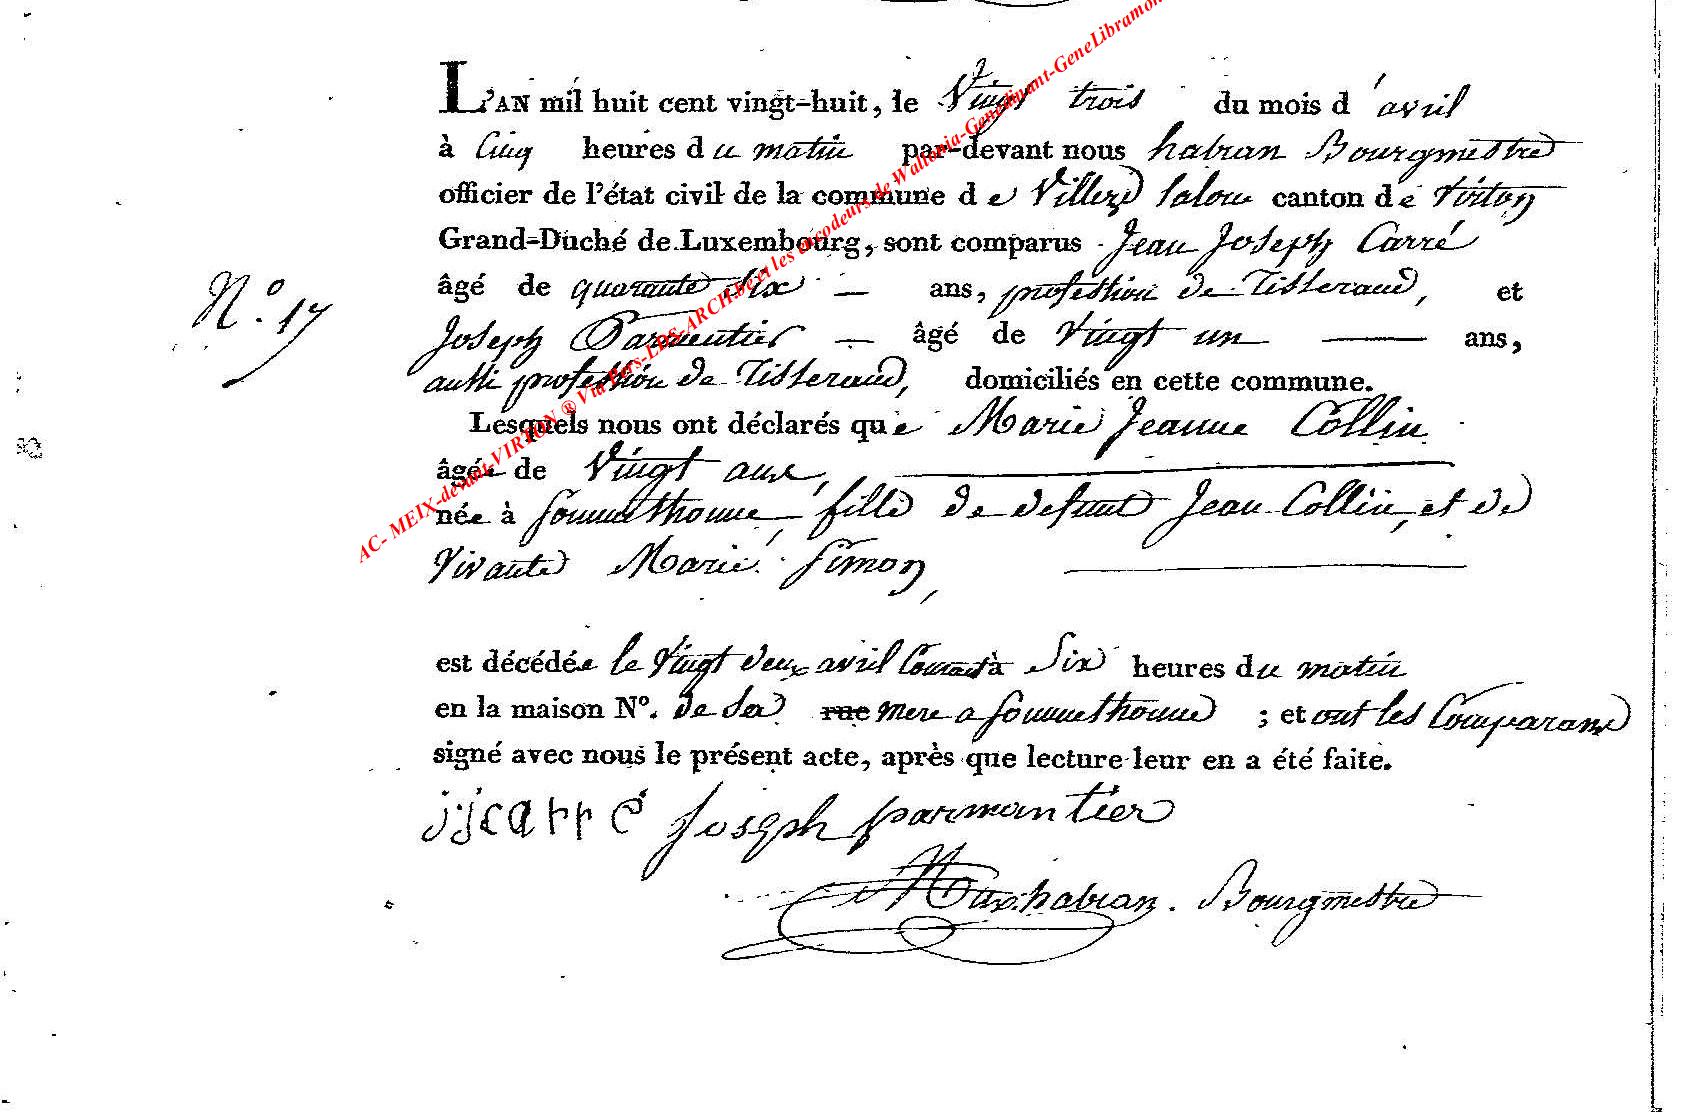 L'AN mil huit cent vingt-huit, le Vingt trois du mois d'avril
à Cinq heures du matin par-devant nous habran Bourgmestre
officier de l'état civil de la commune de Villers la loue canton de Virton
Grand-Duché de Luxembourg, sont comparus Jean Joseph Carré
âgé de quarante six — ans, profession de Tisserand, et
N.° 17
Joseph Parmentier — âgé de Vingt un — ans,
aussi profession de Tisserand, domiciliés en cette commune.
Lesquels nous ont déclarés que Marie Jeanne Collin
âgée de Vingt ans,
née à Sommethonne, fille de defunt Jean Collin, et de
Vivante Marie Simon,
est décédée le Vingt deux avril Courant à Six heures du matin
en la maison N°. de sa rue mere a Sommethonne ; et ont les Comparans
signé avec nous le présent acte, après que lecture leur en a été faite.
jjcarré Joseph parmantier
habran. Bourgmestre
AC- MEIX-devant-VIRTON ® Via Pers-LDS-ARCH.be et les encodeurs de Wallonia-GeneDinant-GeneLibramon